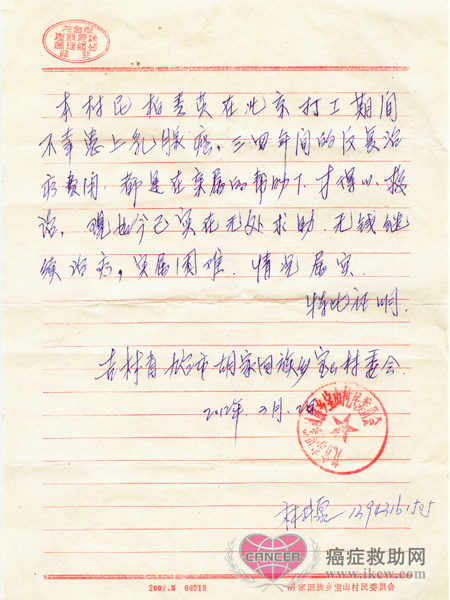 本村民柏秀英在北京打工期间
不幸患上乳腺癌，三四年间的反复治
疗费用，都是在亲属的帮助下，才得以救
治，现如今已实在无处求助，无钱继
续治疗，实属困难，情况属实.
特此证明.
吉林省九台市胡家回族乡宝山村委会.
2012年
CANCER
癌症救助网
www.ikcw.com
2002.5
胡家回族乡宝山村民委员会